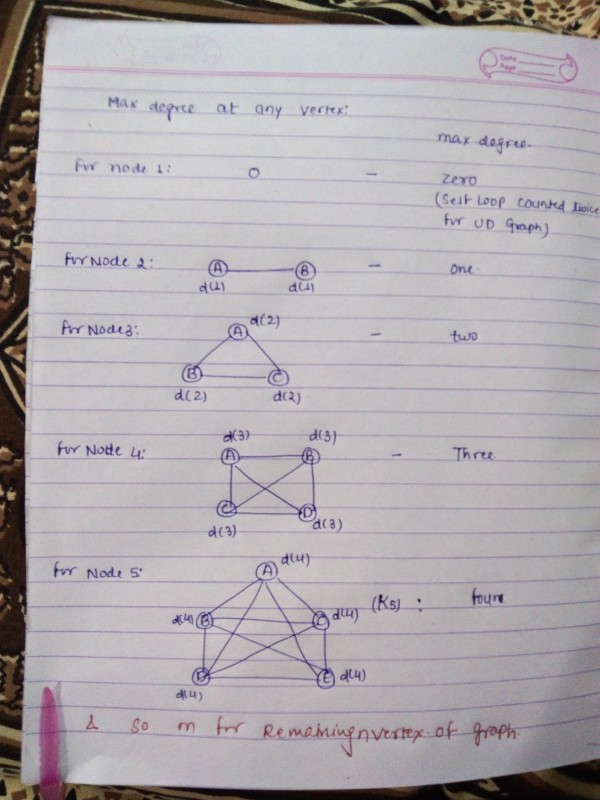 Date
Page
Max degree at any vertex:
max degree.
for node 1: O - zero
(Self Loop counted twice
for UD Graph)
for Node 2: A B - one.
d(1) d(1)
d(2)
for Node 3: A - two
B C
d(2) d(2)
d(3) d(3)
for Node 4: A B - Three.
C D
d(3) d(3)
d(4)
for Node 5: A
d(4) B C d(4) (K5) : four
D E d(4)
d(4)
& so on for Remaining n vertex of graph.